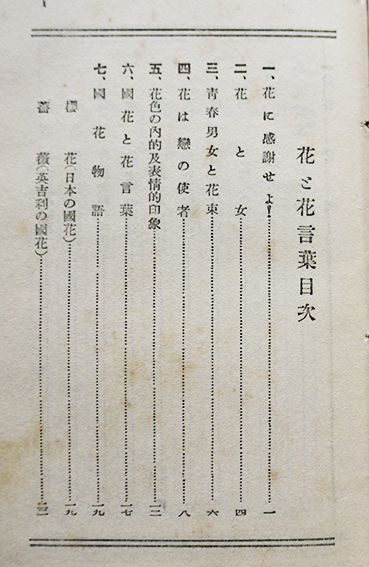 花と花言葉目次
一、花に感謝せよ!……一
二、花と女……四
三、靑春男女と花束……六
四、花は戀の使者……八
五、花色の內的及表情的印象……一二
六、國花と花言葉……一七
七、國花物語……一九
櫻花(日本の國花)……一九
薔薇(英吉利の國花)……